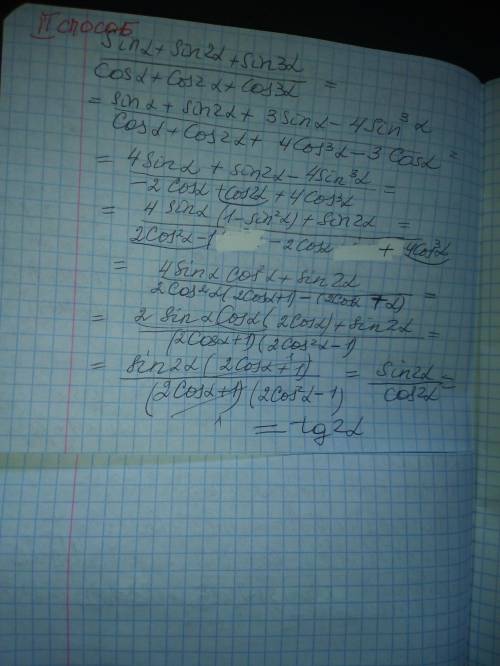 II способ
sinα + sin2α + sin3α / cosα + cos2α + cos3α =
= sinα + sin2α + 3sinα - 4sin³α / cosα + cos2α + 4cos³α - 3cosα =
= 4sinα + sin2α - 4sin³α / -2cosα + cos2α + 4cos³α =
= 4sinα(1-sin²α) + sin2α / 2cos²α-1 - 2cosα + 4cos³α =
= 4sinα cos²α + sin2α / 2cos²α(2cosα+1) - (2cosα + 1) =
= 2sinα cosα(2cosα) + sin2α / (2cosα+1)(2cos²α-1) =
= sin2α(2cosα+1) / (2cosα+1)(2cos²α-1) = sin2α / cos2α =
= tg2α